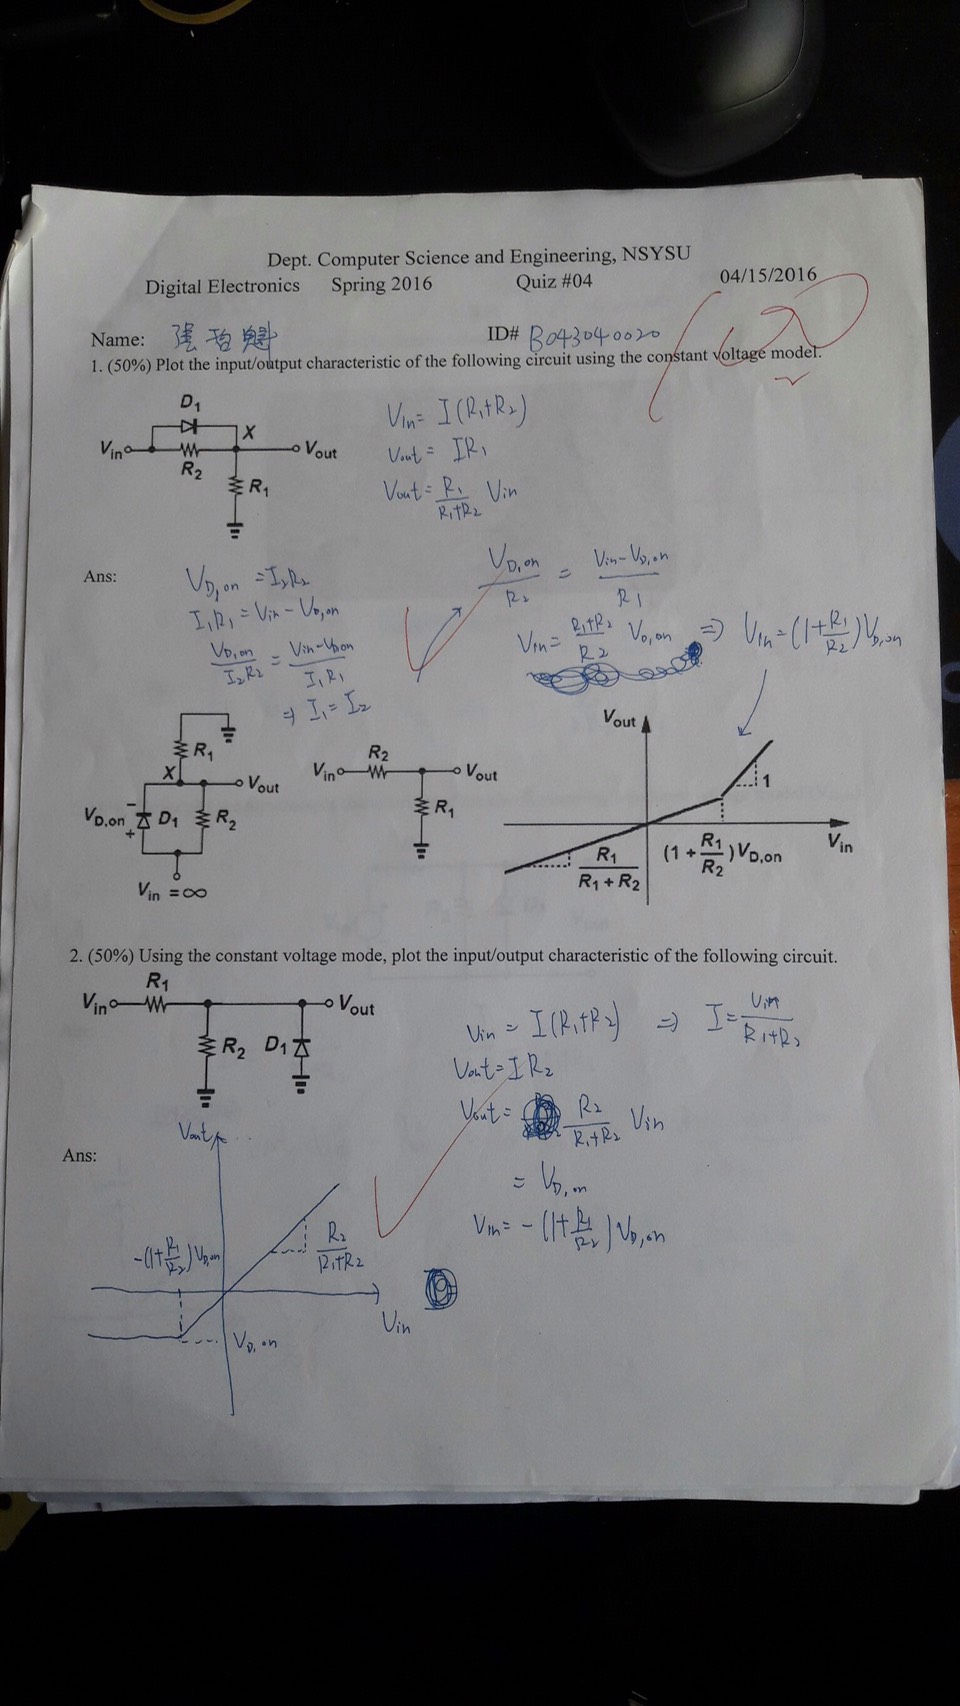 Dept. Computer Science and Engineering, NSYSU
Digital Electronics Spring 2016 Quiz #04 04/15/2016
Name: ID# B043040020
100
1. (50%) Plot the input/output characteristic of the following circuit using the constant voltage model.
D1
Vin
X
Vout
R2
R1
Vin = I(R1+R2)
Vout = IR1
Vout = R1/(R1+R2) Vin
Ans:
VD,on = I2R2
I1R1 = Vin - VD,on
VD,on/I2R2 = Vin-VD,on/I1R1
⇒ I1 = I2
VD,on/R2 = Vin-VD,on/R1
Vin = R1+R2/R2 VD,on ⇒ Vin = (1+R1/R2)VD,on
R1
X
Vout
VD,on
−
+
D1
R2
Vin = ∞
R2
Vin
Vout
R1
Vout
1
Vin
R1/(R1 + R2)
(1 + R1/R2)VD,on
2. (50%) Using the constant voltage mode, plot the input/output characteristic of the following circuit.
R1
Vin
Vout
R2
D1
Vin = I(R1+R2) ⇒ I = Vin/(R1+R2)
Vout = IR2
Vout = R2/(R1+R2) Vin
= VD,on
Vin = -(1+R1/R2)VD,on
Ans:
Vout
-(1+R1/R2)VD,on
R2/(R1+R2)
Vin
VD,on